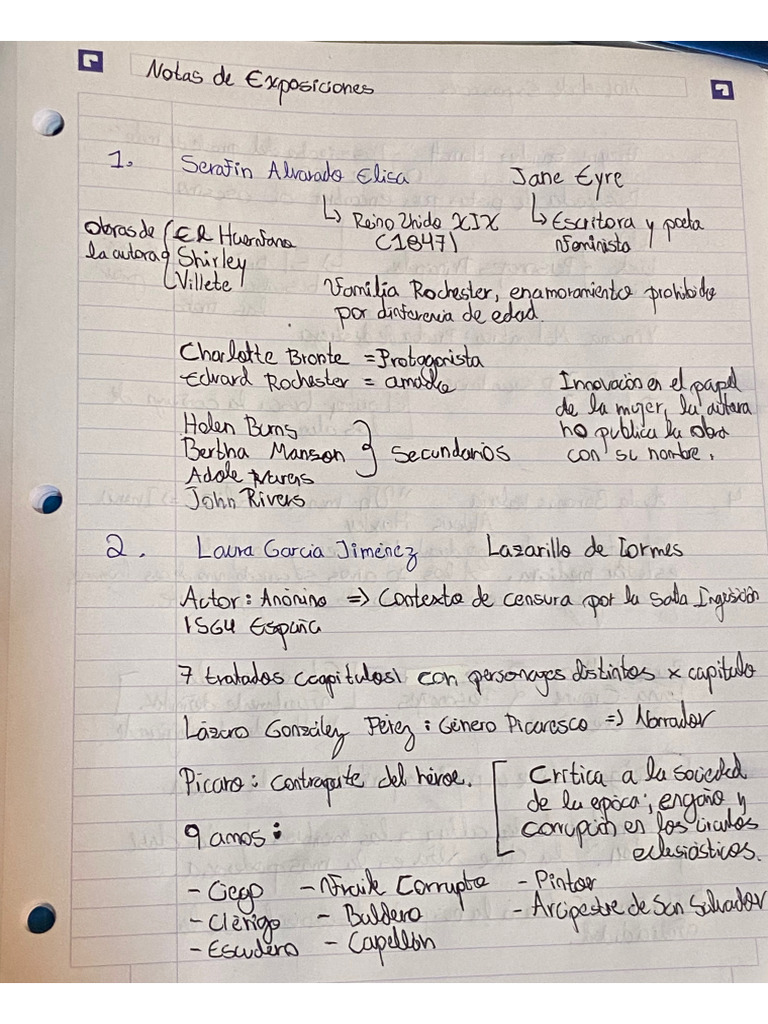 Notas de Exposiciones
1. Serafín Alvarado Elisa Jane Eyre
↳ Reino Unido XIX ↳ Escritora y poeta
(1847) feminista
Obras de la autora { ER Huerfana
Shirley
Villete
Familia Rochester, enamoramiento prohibido
por diferencia de edad.
Charlotte Bronte = Protagonista
Edward Rochester = amado
Helen Burns
Bertha Manson } Secundarios
Adele Varens
John Rivers
Innovación en el papel
de la mujer, la autora
no publica la obra
con su nombre.
2. Laura García Jiménez Lazarillo de Tormes
Actor: Anónimo => Contexto de censura por la Santa Inquisición
1564 España
7 tratados (capitulos) con personages distintos x capitulo
Lázaro González Pérez: Género Picaresco => Narrador
Pícaro: contraparte del héroe.
[ Crítica a la sociedad
de la epoca; engaño y
corrupción en los circulos
eclesiásticos.
9 amos:
- Ciego - Fraile Corrupto - Pintor
- Clérigo - Buldero - Arcipestre de San Salvador
- Escudero - Capellán